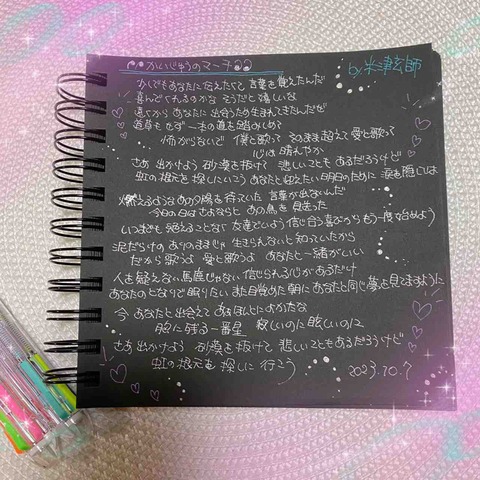 かいじゅうのマーチ
by 米津玄師
少しでもあなたに伝えたくて 言葉を覚えたんだ
喜んでくれるのかな そうだと嬉しいな
遠くから あなたに出会うため生まれてきたんだぜ
道草もせず 一本の道を踏みしめて
怖がらないで 僕と歌って そのまま超えて 愛と歌って
心は晴れやか
さあ 出かけよう 砂漠を抜けて 悲しいことも あるだろうけど
虹の根元を探しにいこう あなたと迎えたい明日のために 涙を隠しては
燃えるようなあの夕陽を待っていた 言葉が出ないんだ
今日の日は さよならと あの鳥を見送った
いつまでも絶えることなく 友達でいよう 信じ合う喜びから もう一度始めよう
泥だらけの ありのままじゃ 生きられないと知っていたから
だから歌うよ 愛と歌うよ あなたと一緒がいい
人を疑えない馬鹿じゃない 信じられる心があるだけ
あなたのとなりで眠りたい また目覚めた朝に あなたと同じ夢を見てますように
今 あなたと出会えて ああほんとによかたな
胸に残る一番星 寂しいのに眩しいのに
さあ出かけよう 砂漠を抜けて 悲しいこともあるだろうけど
虹の根元を 探しに 行こう
2023.10.7